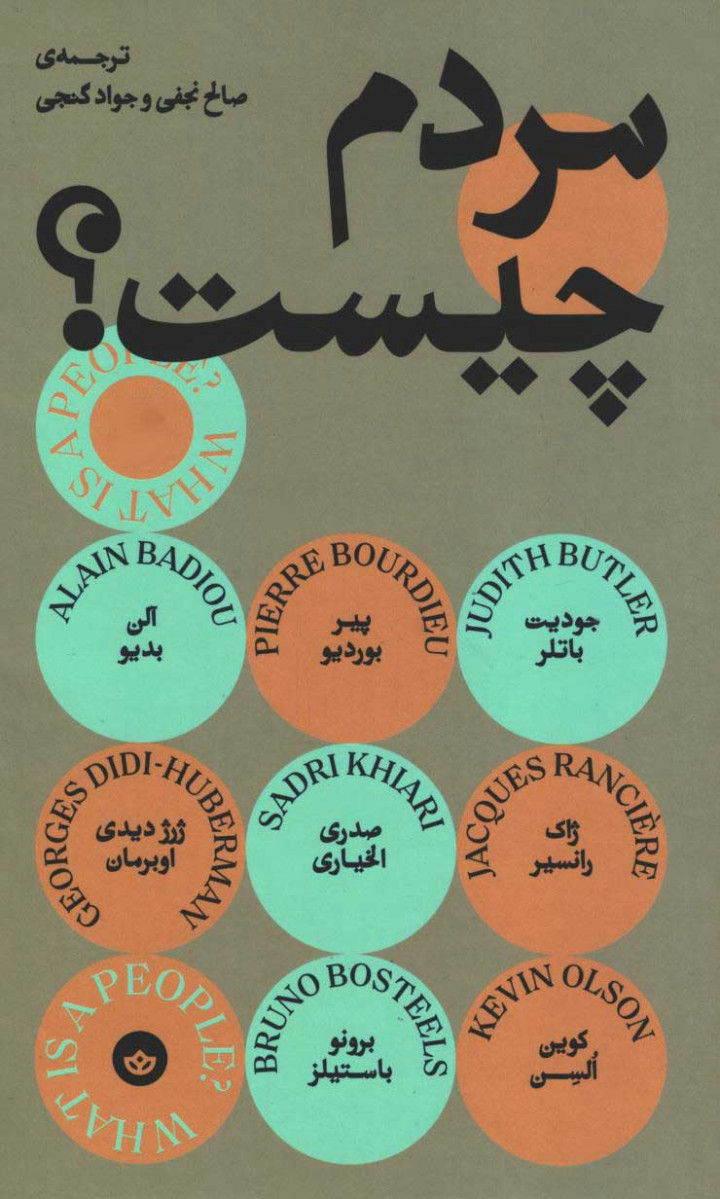 ترجمه‌ی
صالح نجفی و جواد گنجی
مردم
چیست؟
WHAT IS A PEOPLE?
JUDITH BUTLER
جودیت
باتلر
PIERRE BOURDIEU
پییر
بوردیو
ALAIN BADIOU
آلن
بدیو
JACQUES RANCIÈRE
ژاک
رانسیر
SADRI KHIARI
صدری
الخیاری
GEORGES DIDI-HUBERMAN
ژرژ دیدی
اوبرمان
KEVIN OLSON
کوین
اُلسِن
BRUNO BOSTEELS
برونو
باستیلز
WHAT IS A PEOPLE?